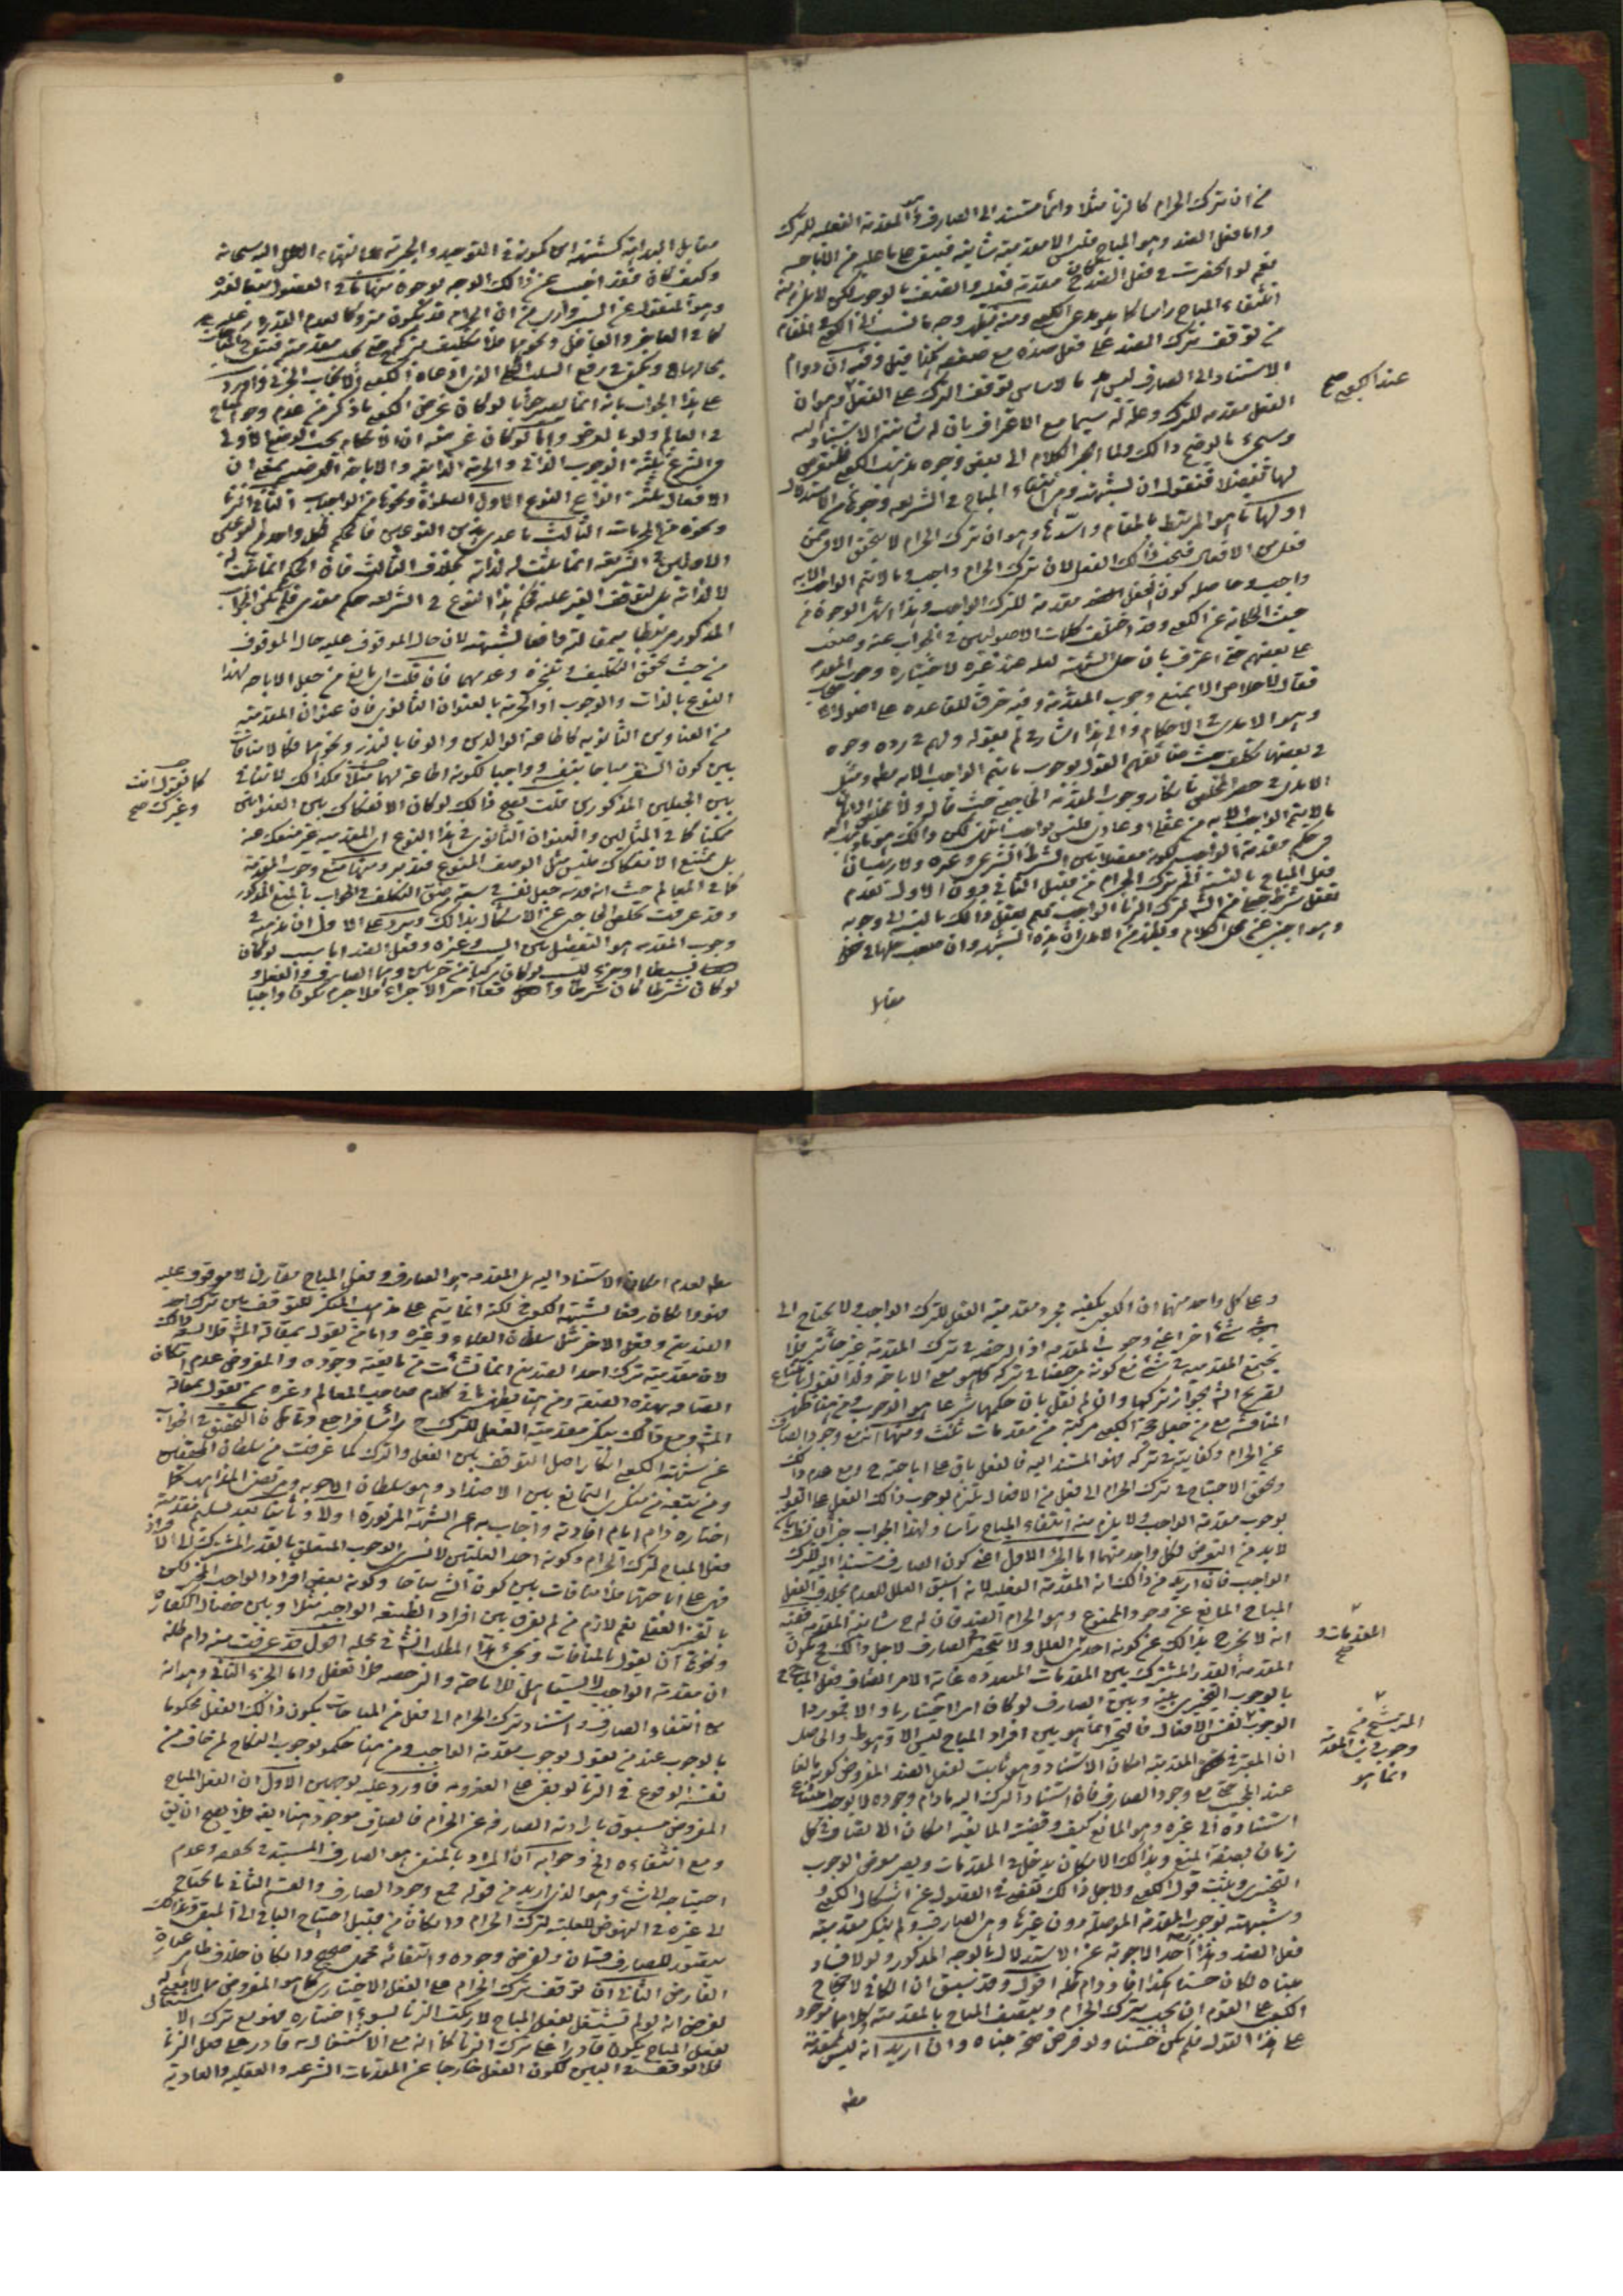 من ان ترك الحرام كالزنا مثلا دائما مستند الى الصارف المقدمة الفعلية للترك
واما فعل الضد وهو المباح فليس الا مقدمية شانية فيبقى على ما عليه من الاباحة
نعم لو انحصرت في فعل الضد مقدمة فعلية والتصف بالوجوب لكن لا يلزم منه
انتفاء المباح راسا كما يدعى الكعبي ومنه يظهر وجه بالنسبة الى الكعبي في المقام
من توقف ترك الضد على فعل ضده مع ضعفه هكذا قيل وفيه ان دوام
الاستناد الى الصارف ليس بالاساس لتوقف الترك على الفعل وهو ان
عند الكعبي صح
الفعل مقدمة للترك وعلة له سيما مع الاعتراف بان له شانية الاستناد اليه
وسيجئ توضيح ذالك ولما انجر الكلام الى بعض وجوه مذهب الكعبي فلنتعرض
لها تفصيلا فنقول ان لشبهته في انتفاء المباح في الشريعة وجوها من الاستدلال
اولها ما هو المرتبط بالمقام واسدها وهو ان ترك الحرام لا يتحقق الا في ضمن
فعل من الافعال فيجب ذالك الفعل لان ترك الحرام واجب وما لا يتم الواجب الا به
واجب وحاصله كون فعل الضد مقدمة للترك الواجب وهذا اشهر الوجوه من
حيث الحكاية عن الكعبي وقد اختلفت كلمات الاصوليين في الجواب عنه وصعب
على بعضهم حتى اعترف بان حل الشبهة لعله عند غيره لاختياره وجوب المقدمة
فقال لا خلاص الا بمنع وجوب المقدمة وفيه خرق للقاعدة على اصول
وهو الامدى في الاحكام والى هذا اشار في لم بقوله ولهم في رده وجوه
في بعضها تكلف حيث ضايقهم القول بوجوب ما لا يتم الواجب الا به مطلقا
الامدى حصر المخلص بانكار وجوب المقدمة الحاجبى حيث قال ولا مخلص الا
ما لا يتم الواجب الا به من عقلى او عادى فليس بواجب انتهى لكن ذالك
في حكم مقدمة الواجب لكونه مفصلا بين الشرط الشرعى وغيره ولا ريب ان
فعل المباح بالنسبة الى ترك الحرام من قبيل الثانى دون الاول لعدم
تعقل شرط شرعى لترك الزنا الواجب نعم يعقل ذالك بالنسبة الى وجوبه
وهو اجنبى عن محل الكلام ويظهر من الامدى ان هذه الشبهة وان صعب حلها الا
مقابل
مقابل البداهة كشبهة ابن كمونة في التوحيد والجبرية على انتهاء الكل اليه سبحانه
وكيف كان فقد اجيب عن ذالك الوجه بوجوه منها ما في الفصول متعا لغيره
وهو المنقول عن السبزوارى من ان الحرام قد يكون متروكا لعدم القدرة عليه
كما في العاجز والغافل ونحوهما فلا تكليف بتركه حتى يجب مقدمته فيبقى المباح
بحالها ويكفى في رفع السلب الكلى الذى ادعاه الكعبي الايجاب الجزئى واورد
على هذا الجواب بانه انما يصير جوابا لو كان غرض الكعبي ما ذكر من عدم وجود المباح
في العالم ولو بالعرض واما لو كان غرضه ان الاحكام بحسب الوضع الاولى
في الشرع ثلثة الوجوب الذاتى والحرمة الذاتية والاباحة العرضية بمعنى ان
الافعال ثلثة انواع النوع الاول الصلوة ونحوها من الواجبات الثانى الزنا
ونحوه من المحرمات الثالث ما عدى هذين النوعين فالحكم لكل واحد من النوعين
الاولين في الشريعة انما يثبت له لذاته بخلاف الثالث فان الحكم انما ثبت له
لا لذاته بل لتوقف الغير عليه فحكم هذا النوع في الشريعة حكم مقدمى فلم يكن الجواب
المذكور مرتبطا بمقالته دافعا لشبهته لان حال الموقوف عليه حال الموقوف
من حيث تحقق التكليف وتنجزه وعدمهما فان قلت اى مانع من جعل الاباحة لهذا
النوع بالذات والوجوب او الحرمة بالعنوان الثانوى فان عنوان المقدمية
من العناوين الثانوية كاطاعة الوالدين والوفاء بالنذر ونحوهما فكما لا منافات
بين كون السفر مباحا بنفسه وواجبا لكونه اطاعة لهما مثلا فكذالك لا تنافى
كما نقول انت
وغيرك صح
بين الجعلين المذكورين قلت يصح ذالك لو كان الانفكاك بين العنوانين
ممكنا كما في المثالين والعنوان الثانوى في هذا النوع اى المقدمية غير منفك عنه
بل ممتنع الانفكاك فليس مثل الوصف المقنوع فتدبر ومنها منع وجوب المقدمة
كما في المعالم حيث انه قدس سره جعل نفسه في سعة من ضيق التكلف في الجواب بالمنع المذكور
وقد عرفت تخلص الحاجبى عن الاشكال بذالك ويرد على الاول ان مذهبه في
وجوب المقدمة هو التفصيل بين السبب وغيره وفعل الضد اما سبب لو كان
بسيطا او جزء السبب لو كان مركبا من جزئين وهما الصارف والفعل او
لو كان شرطا كان شرطا واقعا اخر الاجزاء فلا جرم يكون واجبا
وعلى كل واحد منهما ان الكعبي يكفيه مجرد مقدمية الفعل للترك الواجب ولا يحتاج الى
شئ اخر اعنى وجوب المقدمة اذ الرخصة في ترك المقدمة غير جائزة فلا
يجتمع المقدمية في شئ مع كونه مرخصا في تركه كما هو معنى الاباحة ولذا نقول بامتناع
تصريح الشارع بجواز تركها وان لم نقل بان حكمها شرعا هو الوجوب ومن هنا يظهر
المناقشة مع من جعل حجة الكعبي مركبة من مقدمات ثلث ومنها انه مع وجود الصارف
عن الحرام وكفايته في تركه فهو المستند اليه فالفعل باق على اباحته ومع عدم ذالك
وتحقق الاحتياج في ترك الحرام الى فعل من الافعال نلتزم بوجوب ذالك الفعل على القول
بوجوب مقدمة الواجب ولا يلزم منه انتفاء المباح راسا ولهذا الجواب جزآن
لا بد من التعرض لكل واحد منهما اما الجزء الاول اعنى كون الصارف مستندا اليه للترك
الواجب فان اريد من ذالك انه المقدمة الفعلية لانه اسبق العلل للعدم بخلاف الفعل
المباح المانع عن وجود الممنوع وهو الحرام الضد فان له شانية المقدمية ففيه
انه لا يخرج بذالك عن كونه احدى العلل ولا يتعين الصارف لاجل ذالك فيكون
المقدمات و
صح
المقدمة القدر المشترك بين المقدمات المتعددة غاية الامر اتصاف فعل المباح
بالوجوب التخييرى بينه وبين الصارف لو كان امرا اختياريا والا فمورد
المترشح من
وجوب ذى المقدمة
انما هو
الوجوب نفس الافعال فالتخيير انما هو بين افراد المباح ليس الا وهو ط والحاصل
ان المعتبر في المقدمية امكان الاستناد وهو ثابت لفعل الضد المفروض كونه مانعا
عند المجيب حتى مع وجود الصارف فان استناد الترك اليه ما دام وجوده لا يوجب امتناع
استناده الى غيره وهو المانع كيف وقضية المانعية امكان الاتصاف في كل
زمان بصفة المنع وبذالك الامكان يدخل في المقدمات ويصير معروض الوجوب
التخييرى ويثبت قول الكعبي ولاجل ذالك تفصى في الفصول عن اشكال الكعبي
وشبهته بوجوب المقدمة الموصلة دون غيرها وهى الصارف ولم ينكر مقدمية
فعل الضد وهذا احد الاجوبة عن الاستدلال بالوجه المذكور ولولا فساد
مبناه لكان حسنا هكذا افاد دام ظله اقول وقد سبق ان الكافى لاحتجاج
الكعبي على القوم ان يجب بترك الحرام ويتصف المباح بالمقدمية وكلاهما موجود
على هذا القول فلم يكن حسنا ولو فرض صحة مبناه وان اريد انه ليس بمقدمة
مط
مط لعدم امكان الاستناد اليه بل المقدمة هو الصارف وفعل المباح مقارن لا موقوف عليه
فهو وان كان رفعا لشبهة الكعبي لكنه انما يتم على مذهب المنكر للتوقف بين ترك احد
الضدين وفعل الاخر مثل سلطان العلماء وغيره واما من يقول بمقالة المش فلا يسعه ذالك
لان مقدمية ترك احد الضدين انما نشات من مانعية وجوده والمفروض عدم امكان
اتصافه بهذه الصفة ومن هنا يظهر ما في كلام صاحب المعالم وغيره ممن يقول بمقالة
المش ومع ذالك ينكر مقدمية الفعل للترك راسا فراجع وتامل فالتحقيق في الجواب
عن شبهة الكعبي انكار اصل التوقف بين الفعل والترك كما عرفت من سلطان المحققين
ومن تبعه من منكرى التمانع بين الاضداد وهو سلطان الاجوبة ومن بعض المذاهب
اختاره دام ايام افاداته واجاب به عن الشبهة المزبورة اولا وثانيا بعد تسليم مقدمية
فعل المباح لترك الحرام وكونه احد العلتين لا نسرى الوجوب المتعلق بالقدر المشترك الى الافراد
فهى على اباحتها فلا منافات بين كون الشئ مباحا وكونه بعض افراد الواجب المخير لكن
بالتخيير العقلى نعم لازم من لم يفرق بين افراد الطبيعة الواجبة مثلا وبين خصال الكفارة
ونحوها ان يقول بالمنافات وتحرير هذا المطلب في محله اقول قد عرفت منه دام ظله
ان مقدمة الواجب لا يستاهل للاباحة والرخصة فلا تغفل واما الجزء الثانى وهو انه
مع انتفاء الصارف واستناد ترك الحرام الى فعل من المباحات يكون ذالك الفعل محكوما
بالوجوب عند من يقول بوجوب مقدمة الواجب ومن هنا حكموا بوجوب النكاح لمن خاف من
نفسه الوقوع في الزنا لو بقى على العزوبة فاورد عليه بوجهين الاول ان الفعل المباح
المفروض مسبوق بارادته الصارفة عن الحرام فالصارف موجود هنا ايضا فلا يصح ان يقال
ومع انتفاءه الخ وجوابه ان المراد بالمنفى هو الصارف المستبد في تحققه وعدم
احتياجه الى شئ وهو الذى اريد من قوله مع وجود الصارف والقسم الثانى ما يحتاج
الى غيره في النهوض للعلية لترك الحرام وان كان من قبيل احتياج البانى الى المبقى فهناك
يتصور للصارف قسمان ولفرض وجوده وانتفائه محمل صحيح وان كان خلاف ظاهر عبارة
الفارض الثانى ان توقف ترك الحرام على الفعل الاختيارى كما هو المفروض ما لا معنى له
لفرض انه لو لم يشتغل بفعل المباح لارتكب الزنا بسوء اختياره فهو مع ترك الاشتغال
بفعل المباح يكون قادرا على ترك الزنا كما انه مع الاشتغال به قادر على فعل الزنا
فلا توقف في البين لكون الفعل خارجا عن المقدمات الشرعية والعقلية والعادية